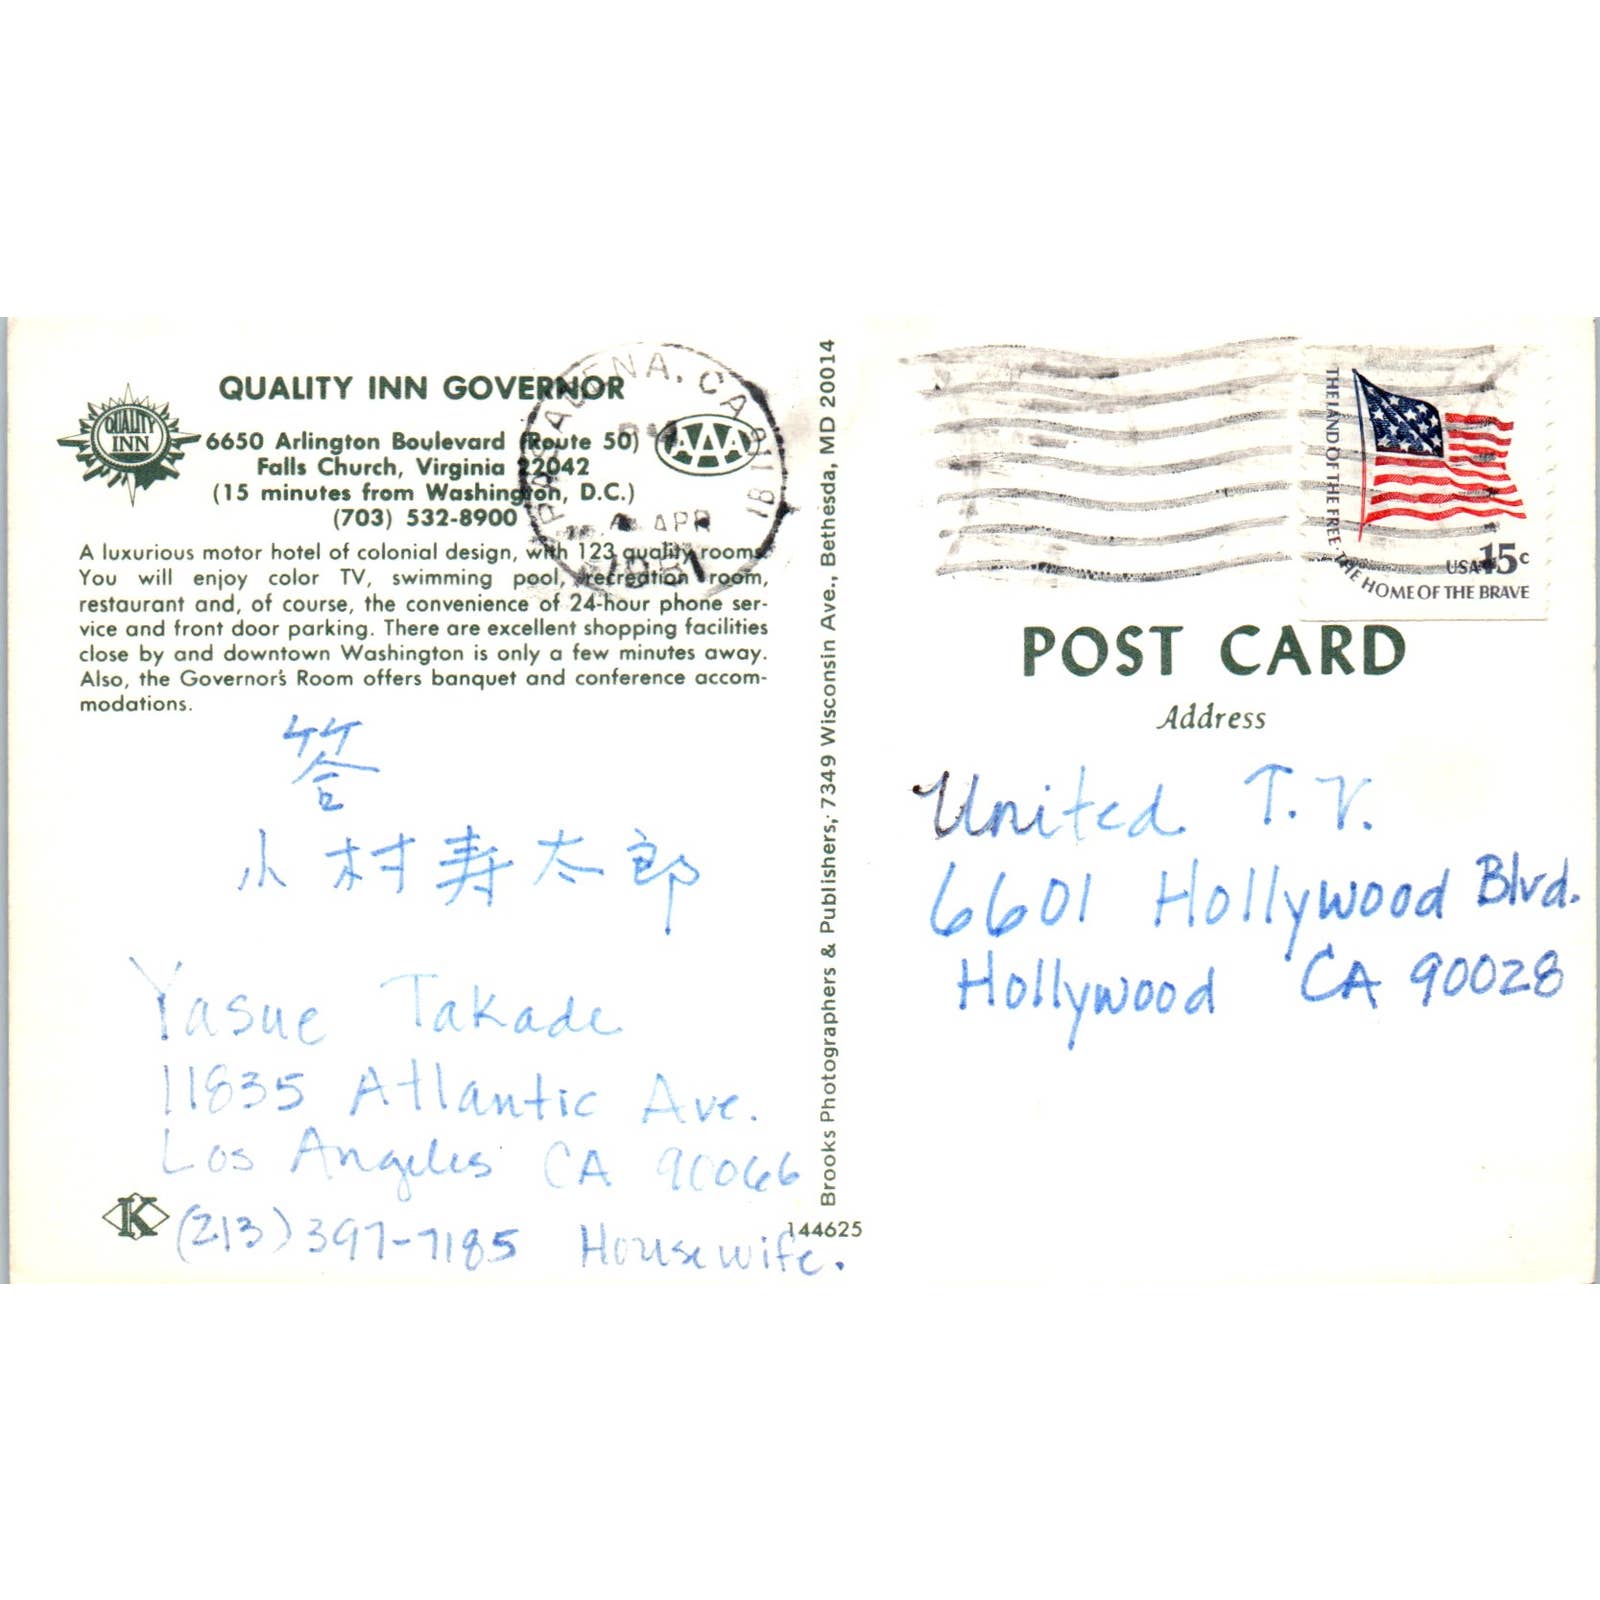 QUALITY INN GOVERNOR
QUALITY
INN
6650 Arlington Boulevard (Route 50)
Falls Church, Virginia 22042
(15 minutes from Washington, D.C.)
(703) 532-8900
AAA
PASADENA, CA 911
APR
1981
A luxurious motor hotel of colonial design, with 123 quality rooms.
You will enjoy color TV, swimming pool, recreation room,
restaurant and, of course, the convenience of 24-hour phone ser-
vice and front door parking. There are excellent shopping facilities
close by and downtown Washington is only a few minutes away.
Also, the Governor's Room offers banquet and conference accom-
modations.
答
小村寿太郎
Yasue Takade
11835 Atlantic Ave.
Los Angeles CA 90066
(213) 397-7185 Housewife.
K
144625
Brooks Photographers & Publishers, 7349 Wisconsin Ave., Bethesda, MD 20014
THE LAND OF THE FREE · THE HOME OF THE BRAVE
USA 15c
POST CARD
Address
United T.V.
6601 Hollywood Blvd.
Hollywood CA 90028